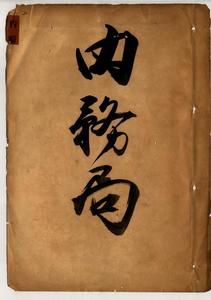 内務局